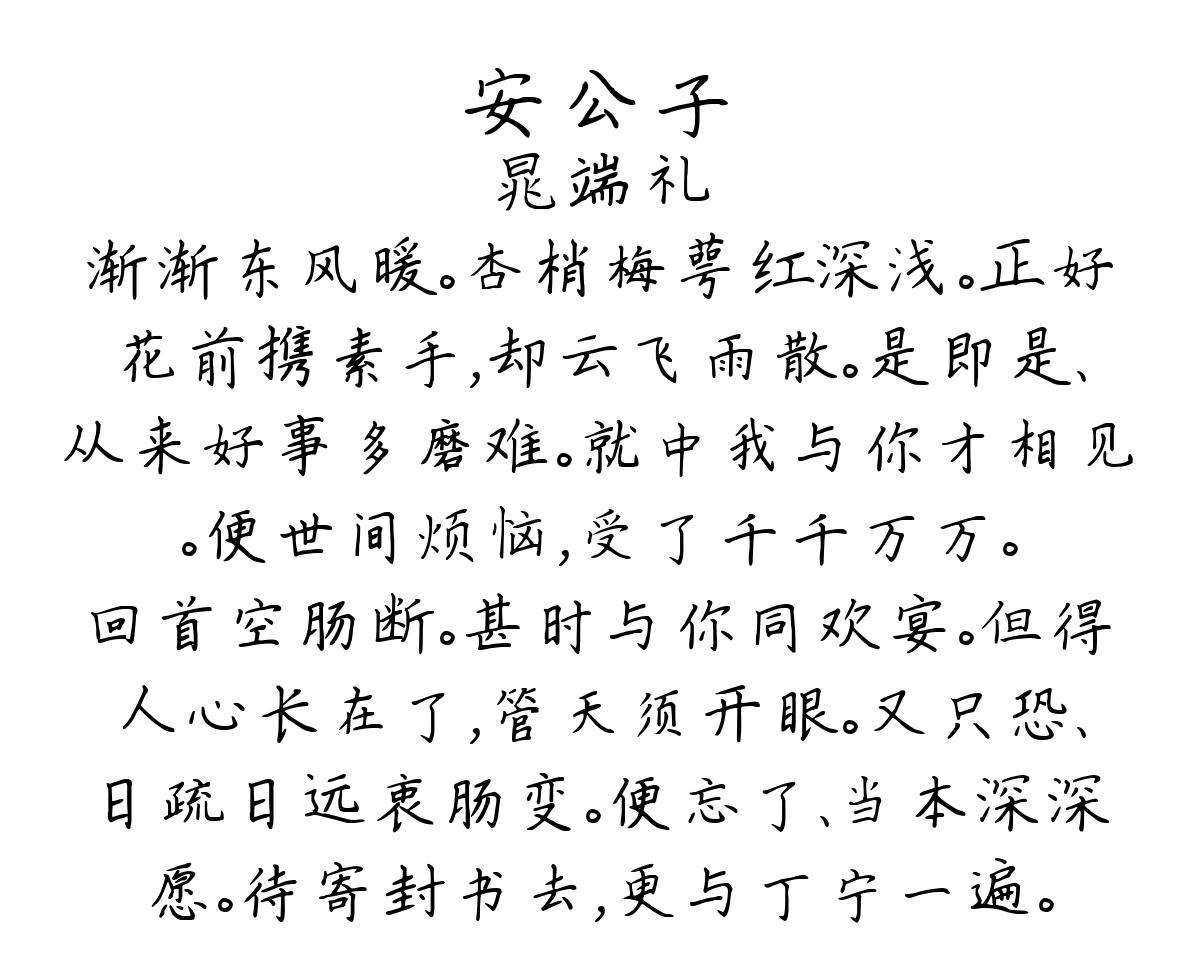 安公子
晁端礼
渐渐东风暖。杏梢梅萼红深浅。正好
花前携素手,却云飞雨散。是即是、
从来好事多磨难。就中我与你才相见
。便世间烦恼,受了千千万万。
回首空肠断。甚时与你同欢宴。但得
人心长在了,管天须开眼。又只恐、
日疏日远衷肠变。便忘了、当本深深
愿。待寄封书去,更与丁宁一遍。